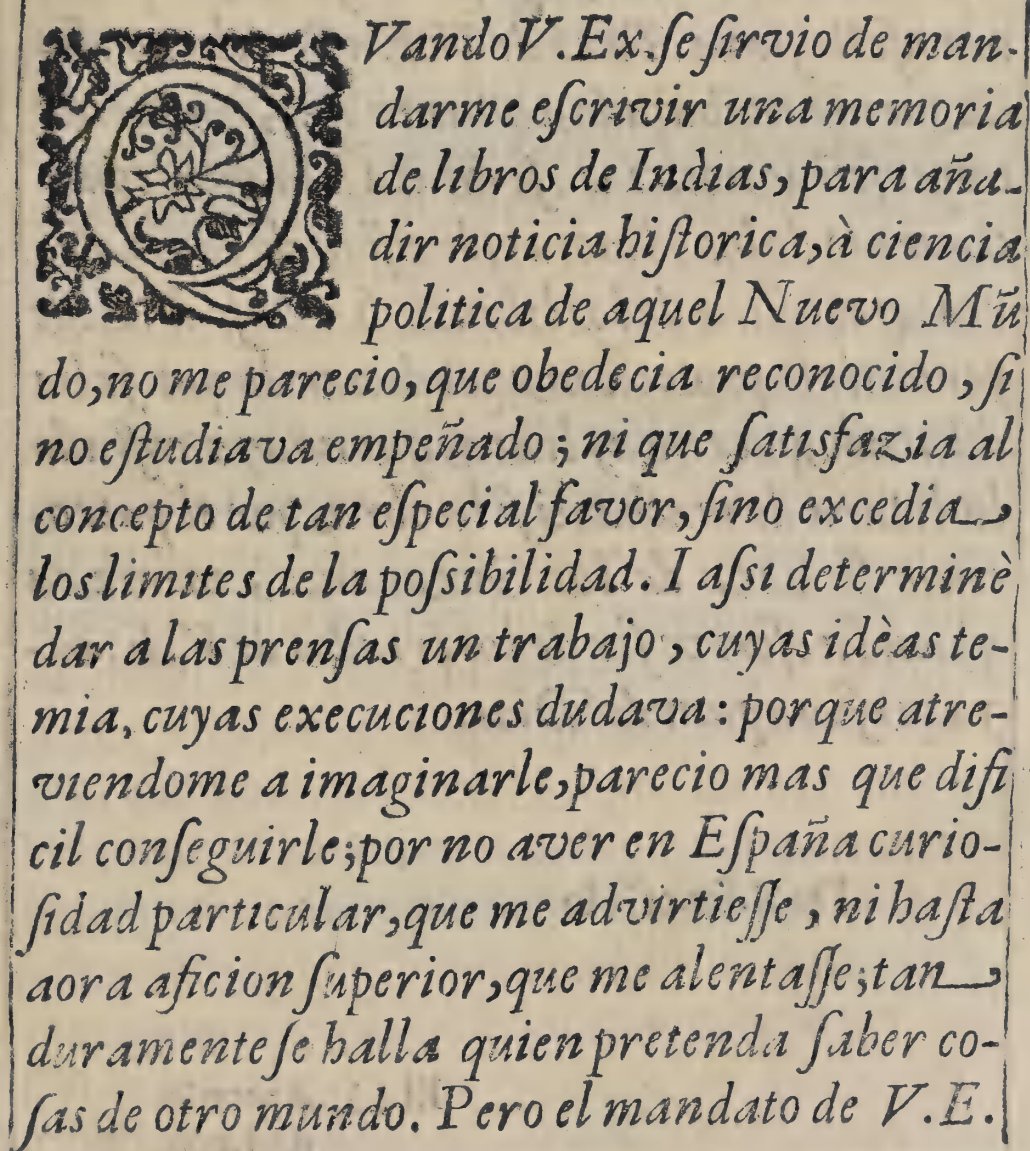 QVando V.Ex.ſe ſirvio de man-
darme eſcrivir una memoria
de libros de Indias, para aña-
dir noticia hiſtorica, à ciencia
politica de aquel Nuevo Mũ
do, no me parecio, que obedecia reconocido, ſi
no eſtudiava empeñado; ni que ſatisfazia al
concepto de tan eſpecial favor, ſino excedia
los limites de la poſsibilidad. I aſsi determinè
dar a las prenſas un trabajo, cuyas idèas te-
mia, cuyas execuciones dudava: porque atre-
viendome a imaginarle, parecio mas que difi
cil conſeguirle; por no aver en Eſpaña curio-
ſidad particular, que me advirtieſſe, ni haſta
aora aficion ſuperior, que me alentaſſe; tan
duramente ſe halla quien pretenda ſaber co-
ſas de otro mundo. Pero el mandato de V.E.